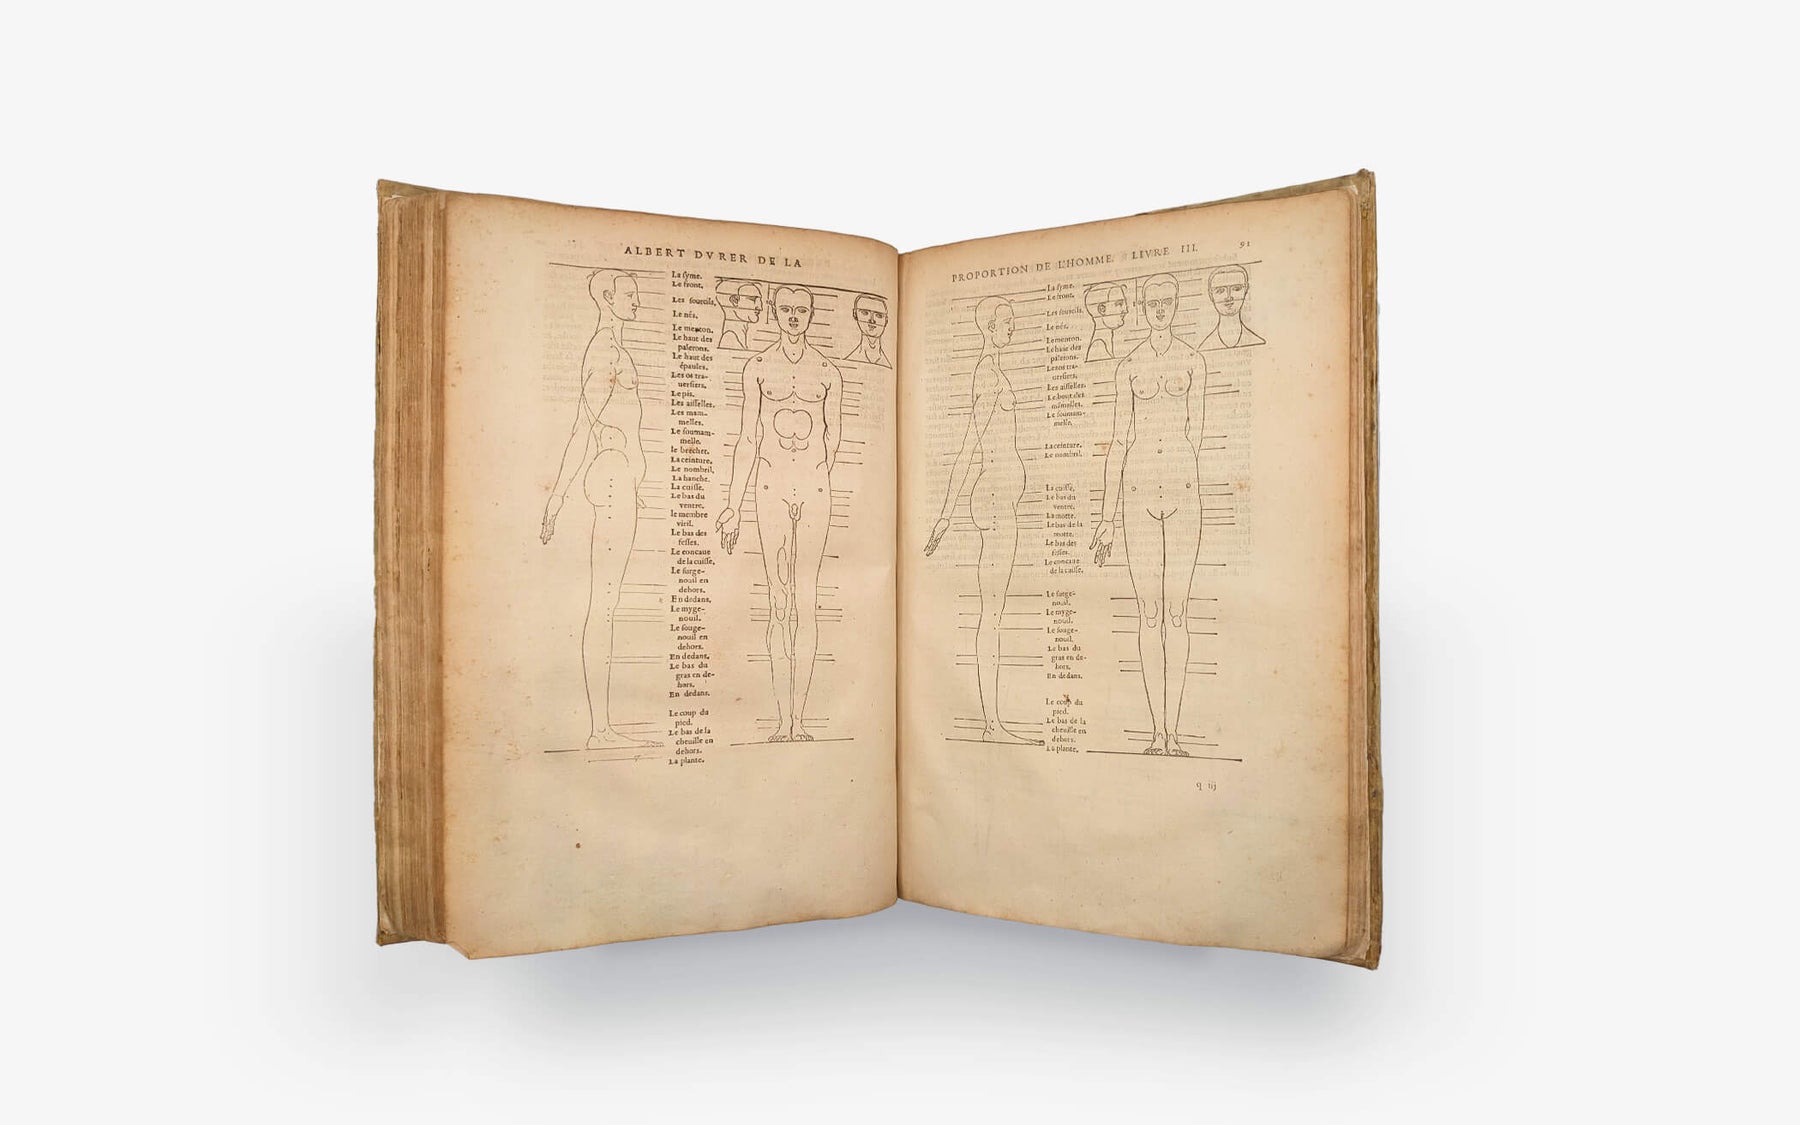 ALBERT DVRER DE LA
La ſyme.
Le front,
Les ſourcils,
Le nés.
Le menton.
Le haut des
palerons.
Le haut des
épaules.
Les os tra-
uerſiers.
Le pis.
Les aiſſelles.
Les mam-
melles.
Le ſoumam-
melle.
le brécher.
La ceinture.
Le nombril.
La hanche.
La cuiſſe.
Le bas du
ventre.
le membre
viril.
Le bas des
feſſes.
Le concaue
de la cuiſſe,
Le ſurge-
nouil en
dehors.
En dedans.
Le myge-
nouil.
Le ſouge-
nouil en
dehors.
En dedans.
Le bas du
gras en de-
hors.
En dedans.
Le coup du
pied.
Le bas de la
cheuille en
dehors.
La plante.
PROPORTION DE L'HOMME. LIVRE III. 91
La ſyme.
Le front,
Les ſourcils.
Le nés.
Le menton.
Le haut des
palerons.
Les os tra-
uerſiers.
Les aiſſelles.
Le bout des
mamelles.
Le ſoumam-
melle.
La ceinture.
Le nombil.
La cuiſſe,
Le bas du
ventre.
La motte.
Le bas de la
motte.
Le bas des
feſſes.
Le concaue
de la cuiſſe.
Le ſurge-
nouil.
Le myge-
nouil.
Le ſouge-
nouil.
Le bas du
gras en de-
hors.
En dedans.
Le coup du
pied.
Le bas de la
cheuille en
dehors.
La plante.
q iij